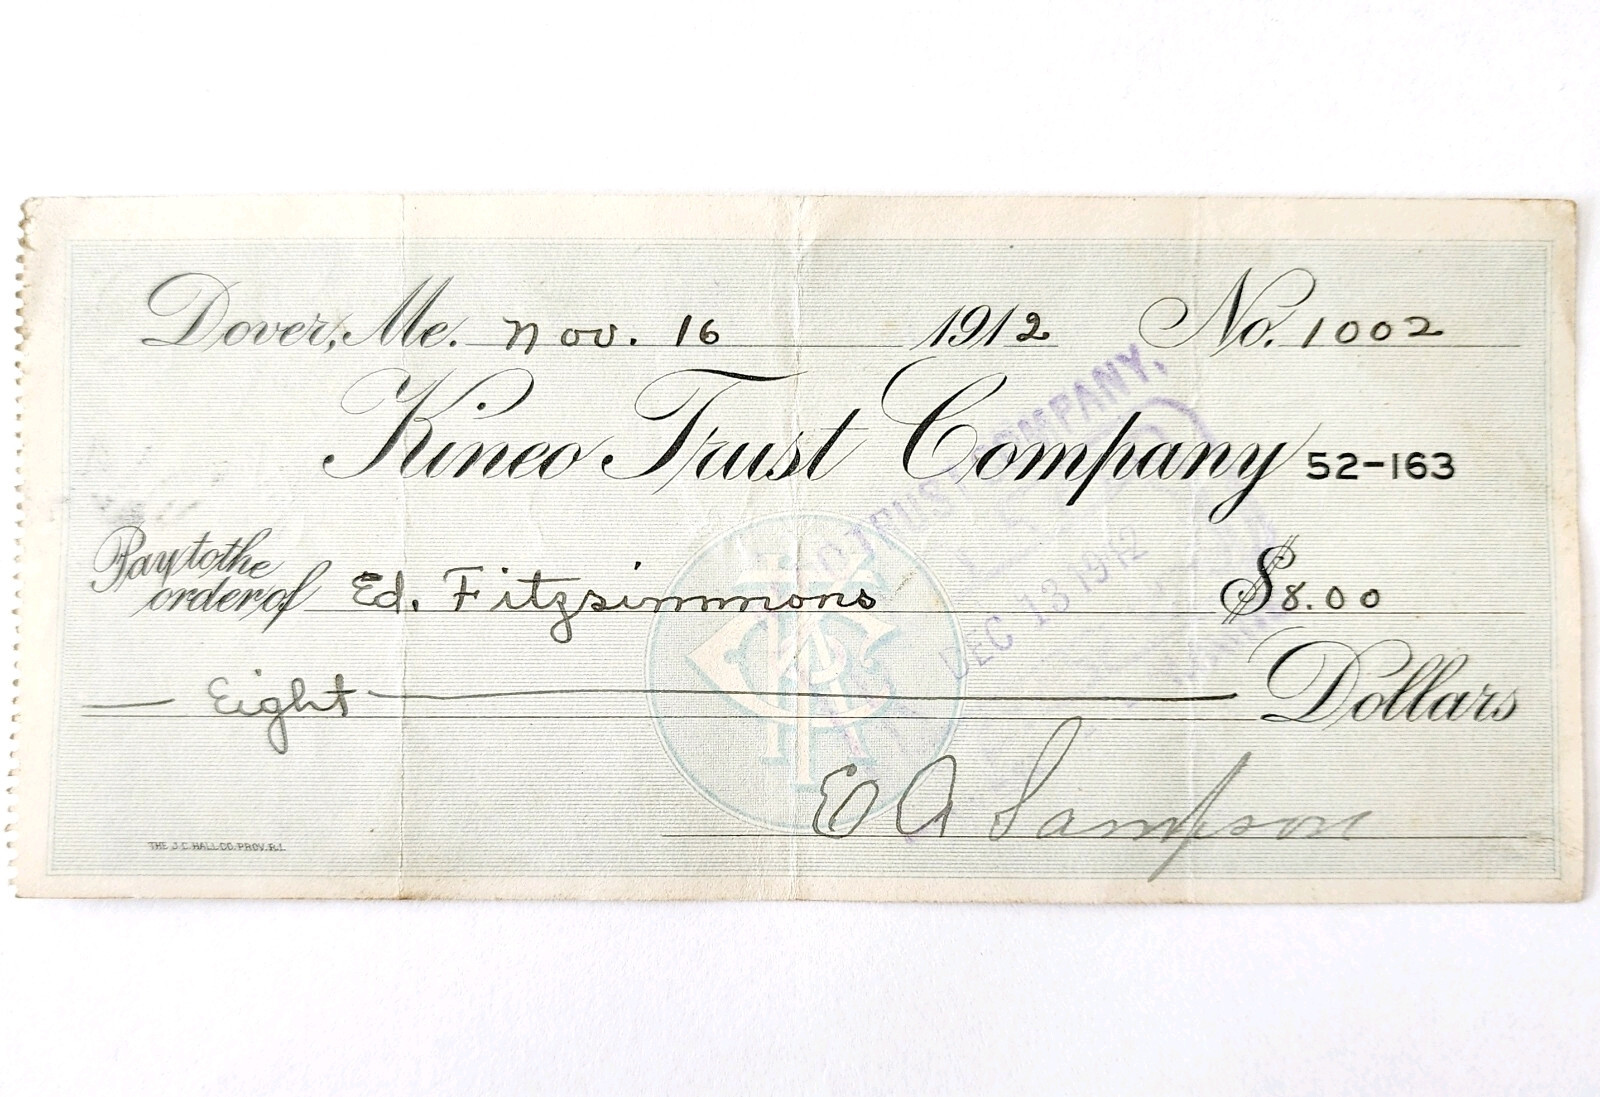 Dover, Me. Nov. 16 1912 No. 1002
Kineo Trust Company 52-163
Pay to the
order of Ed. Fitzsimmons $8.00
Eight Dollars
E A Sampson
THE J.C. HALL CO. PROV. R.I.
TRUST COMPANY,
DEC 13 1912